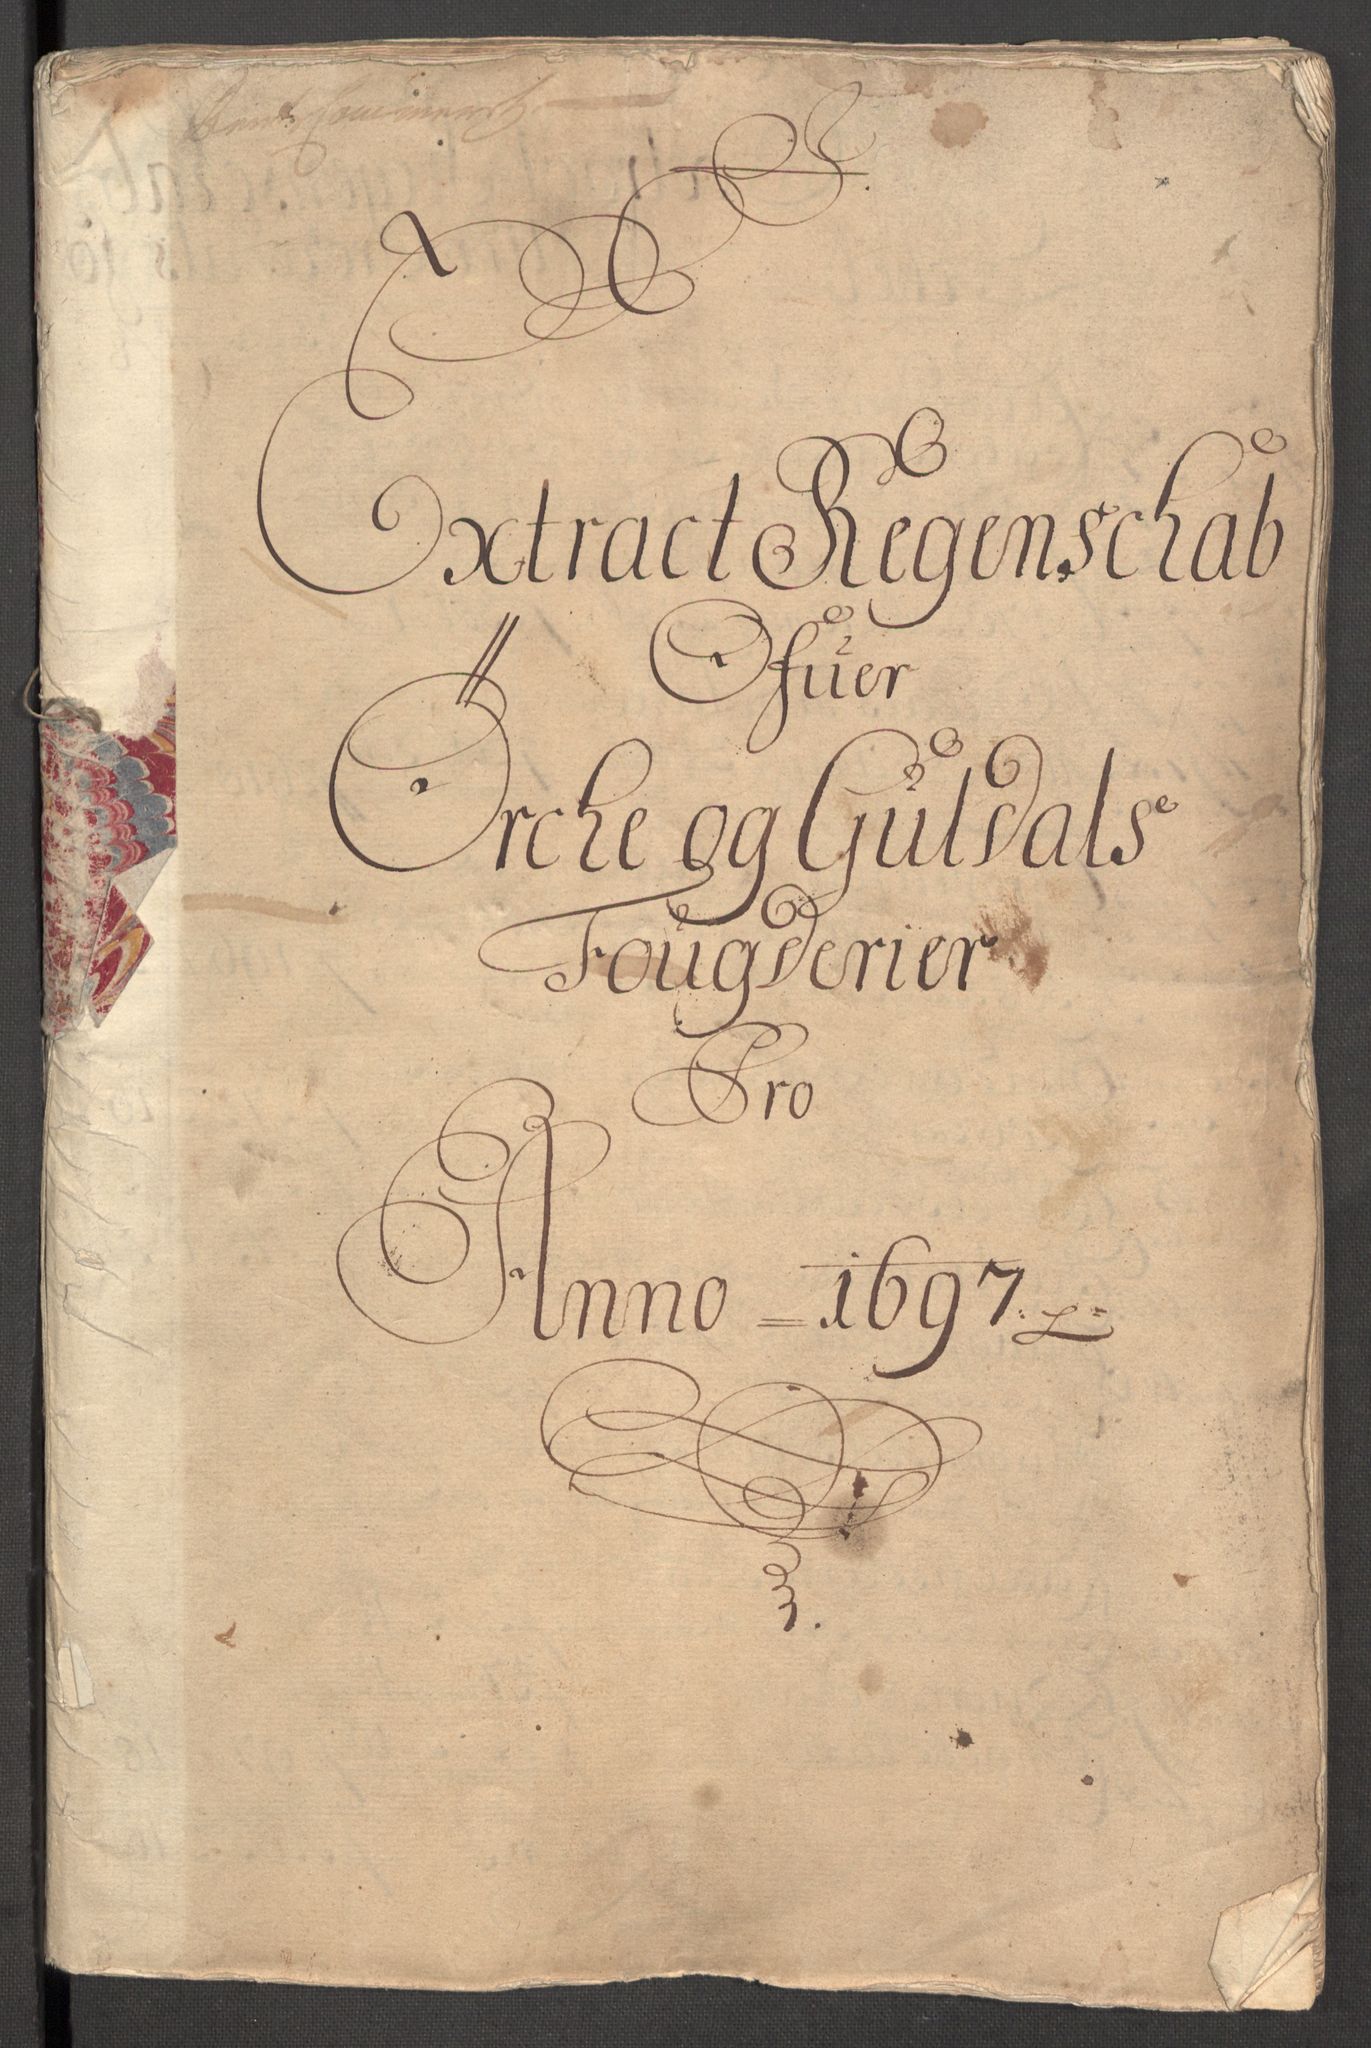 Extract Regenschab
Ofuer
Örche og Guldals
Fougderier
Pro
Anno = 1697